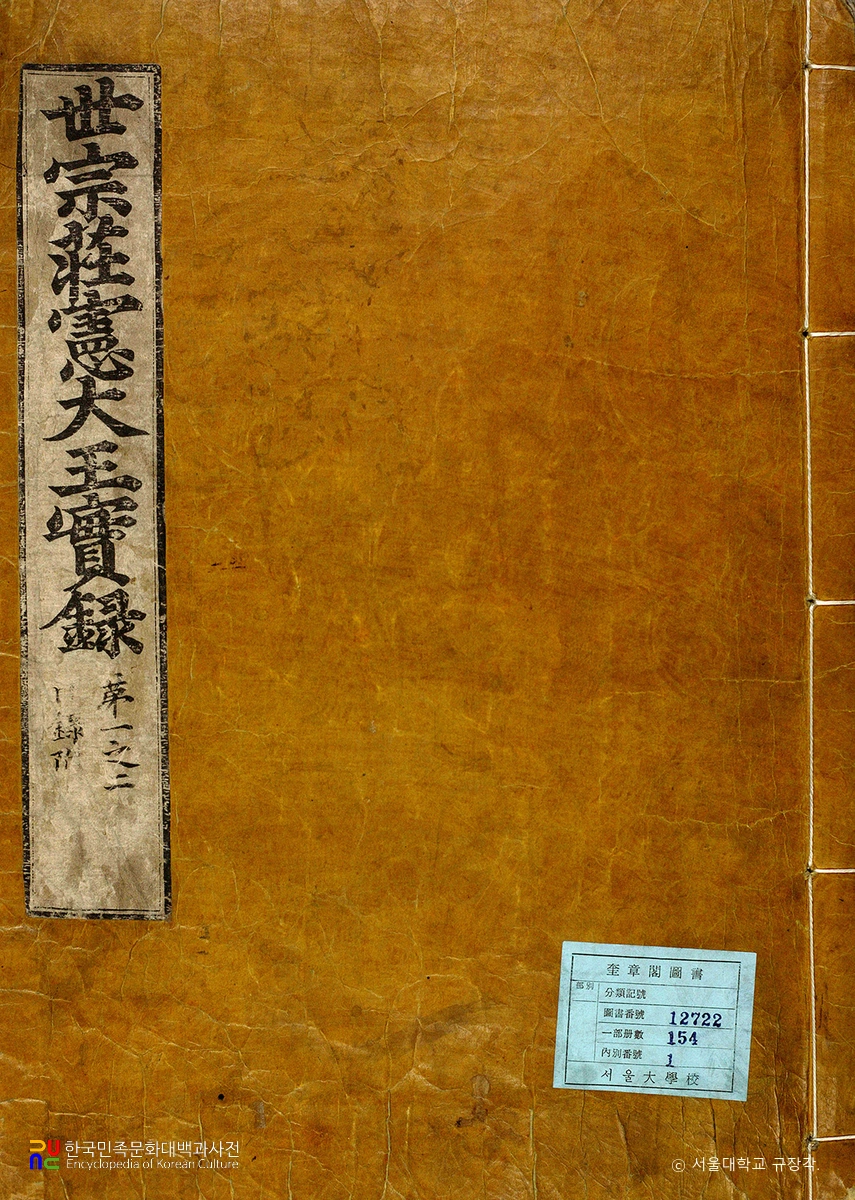 世宗莊憲大王實録
第一之二
目録附
奎章閣圖書
部別
分類記號
圖書番號 12722
一部册數 154
內別番號 1
서울大學校
한국민족문화대백과사전
Encyclopedia of Korean Culture
© 서울대학교 규장각.